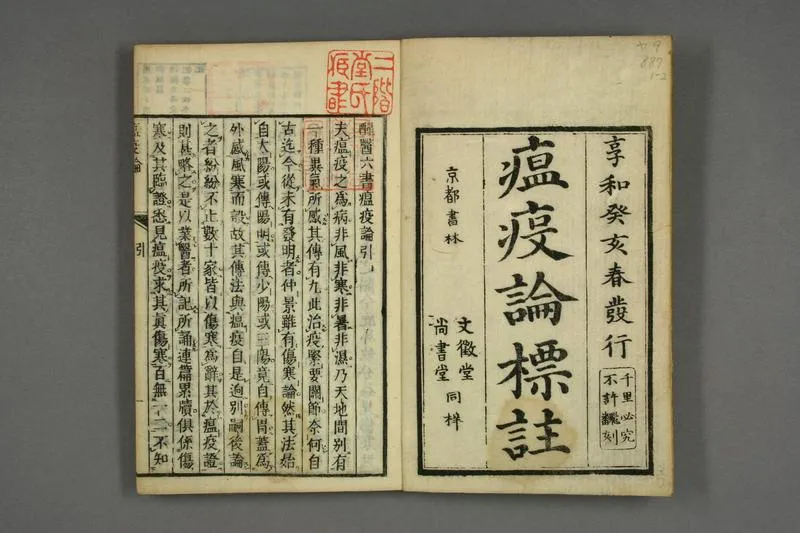 ヤ9
887
1-2
享和癸亥春發行
千里必究
不許飜刻
瘟疫論標註
京都書林
文徵堂
尚書堂
同梓
二階
堂氏
醒醫六書瘟疫論引
夫瘟疫之爲病非風非寒非暑非濕乃天地間别有
一種異氣所感其傳有九此治疫緊要關節奈何自
古迄今從未有發明者仲景雖有傷寒論然其法始
自太陽或傳陽明或傳少陽或三陽竟自傳胃蓋爲
外感風寒而設故其傳法與瘟疫自是逈别嗣後論
之者紛紛不止數十家皆以傷寒爲辭其於瘟疫證
則甚略之是以業醫者所記所誦連篇累牘俱係傷
寒及其臨證悉見瘟疫求其眞傷寒百無一二不知
瘟疫論
引
一